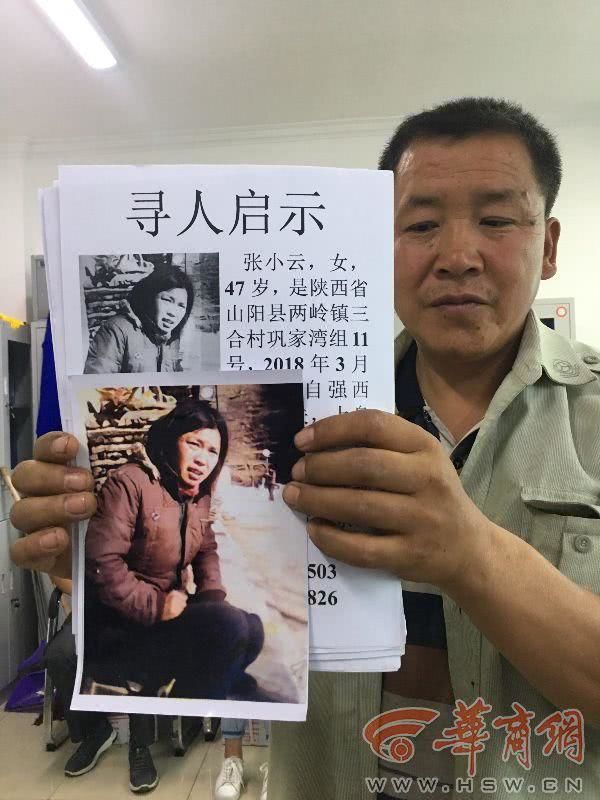 寻人启示
张小云，女，
47岁，是陕西省
山阳县两岭镇三
合村巩家湾组11
号，2018年3月
自强西
503
826
華商網
WWW.HSW.CN